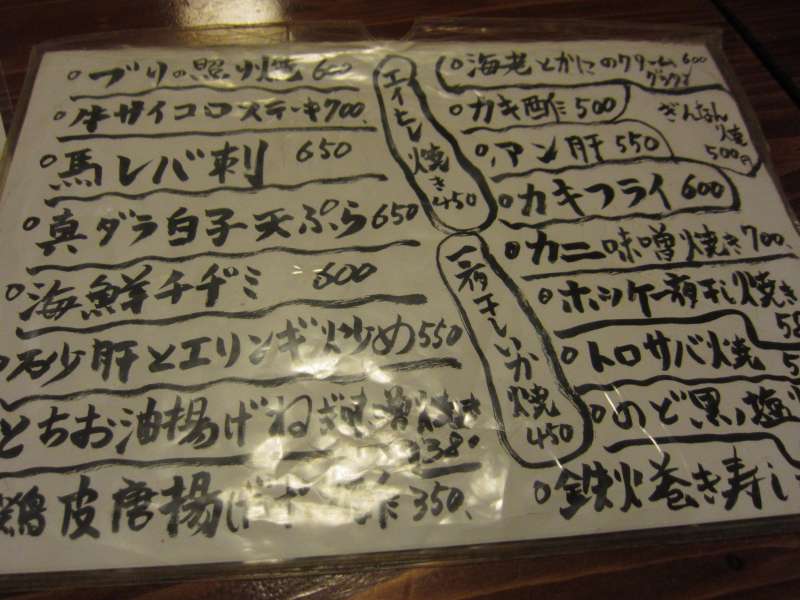 ブリの照り焼 600
牛サイコロステーキ 700
馬レバ刺 650
真ダラ白子天ぷら 650
海鮮チヂミ 600
砂肝とエリンギ炒め 550
とちお油揚げねぎ味噌焼き
380
鶏皮唐揚げポン酢 350
エイヒレ焼き 450
一夜干しいか焼 450
海老とかにのクリーム 600
カキ酢 500
ぎんなん
焼
500円
アン肝 550
カキフライ 600
カニ味噌焼き 700
ホッケ一夜干し焼き
トロサバ焼
のど黒塩
鉄火巻き寿し